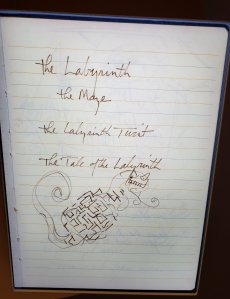 the Labyrinth
the Maze
the Labyrinth Twist
The Tale of the Labyrinth